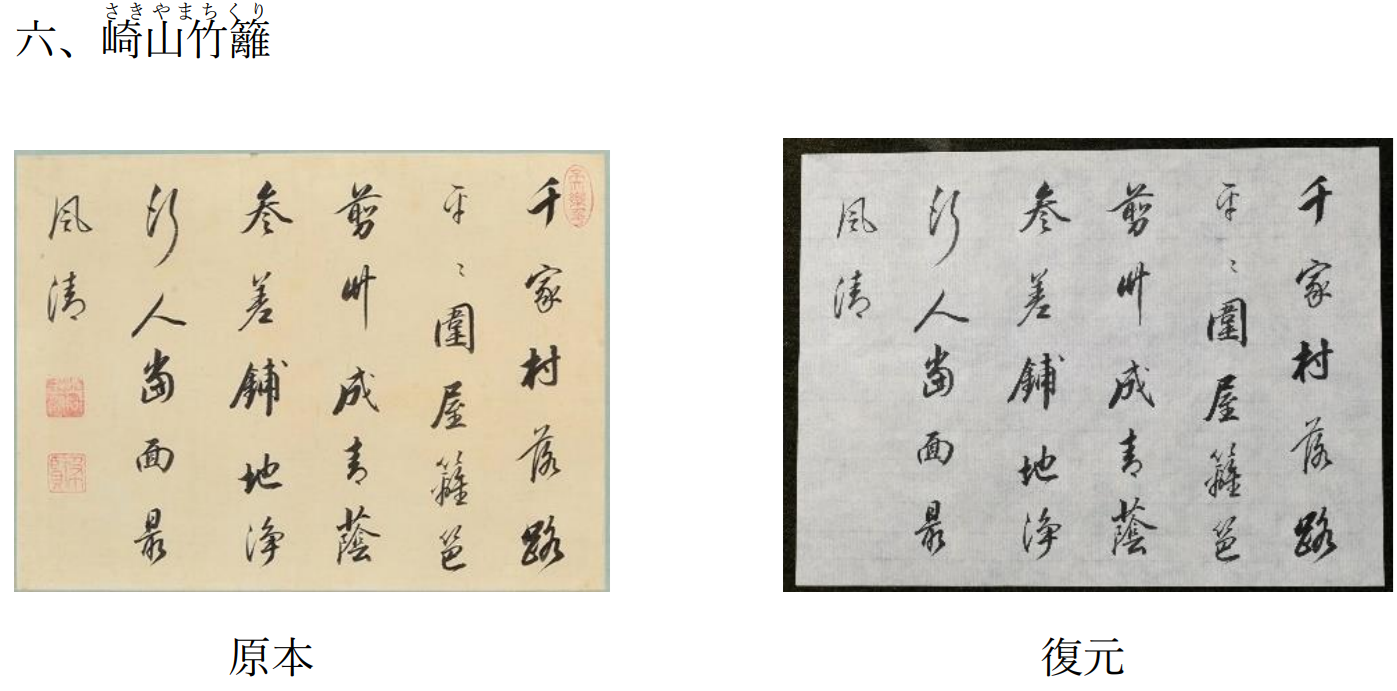 さきやまちくり
六、崎山竹籬
千家村落路
平〻圍屋籬笆
剪州成青蔭
叅差鋪地淨
行人當面最
風清
千家村落路
平〻圍屋籬笆
剪州成青蔭
叅差鋪地淨
行人當面最
風清
原本
復元